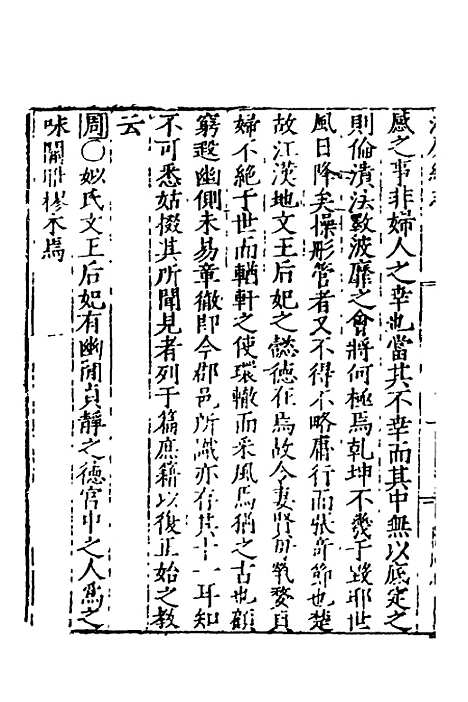 感之事非婦人之幸也當其不幸而其中無以底定之
則倫瀆法斁波靡之會將何極焉乾坤不幾于毀耶世
風日降矣操彤管者又不得不略庸行而獎奇節也楚
故江漢地文王后妃之懿德在焉故令妻賢母執婺貞
婦不絶于世而輶軒之使環轍而采風焉猶之古也顧
窮遐幽側未易章徹即今郡邑所識亦存其十一耳知
不可悉姑掇其所聞見者列于篇庶藉以復正始之教
云
周○姒氏文王后妃有幽閒貞靜之德宫中之人爲之
咏關雎樛木焉